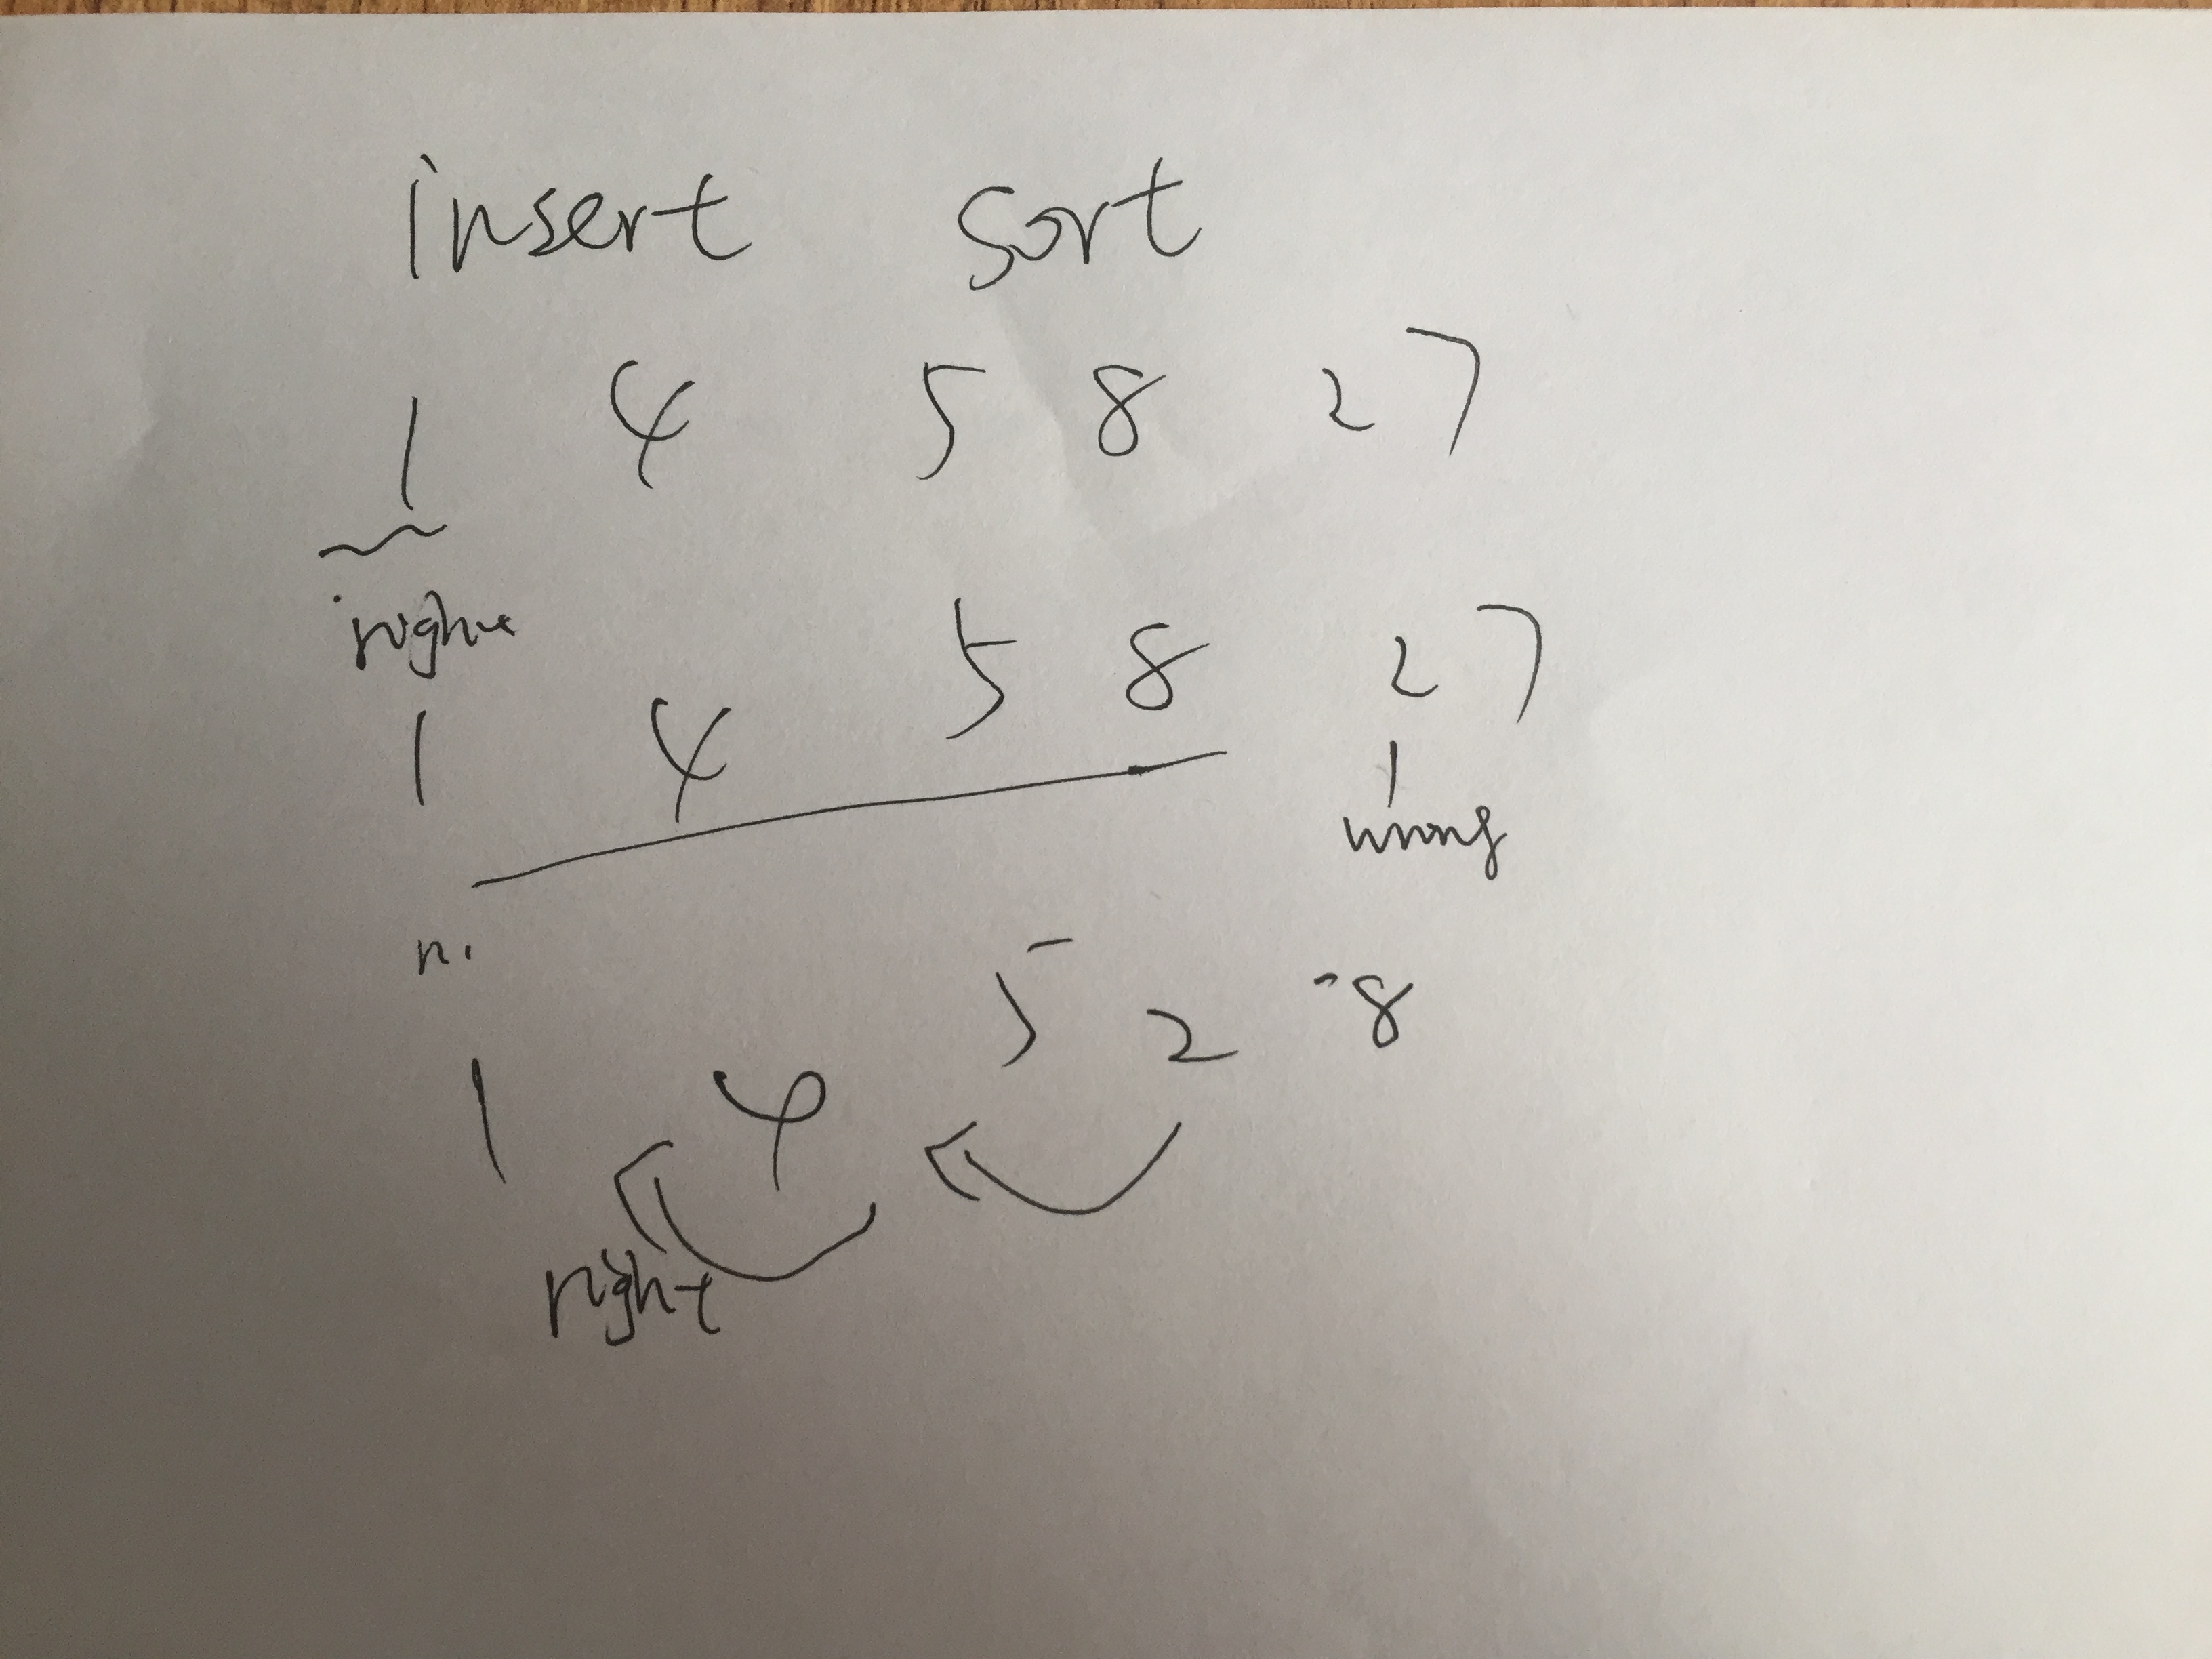 insert sort
1 4 5 8 2 7
right
1 4 5 8 2 7
wrong
1 4 5 2 8
right